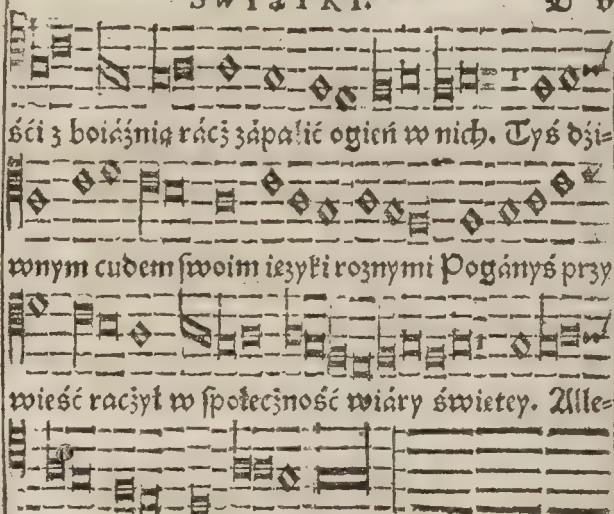 SWIĄTKI.
śći z boiáźnią rácż zápalić ogień w nich. Tyś dzi=
wnym cudem swoim ięzyki roznymi Pogányś przy
wieść racżył w społecżność wiáry świętey. Alle=